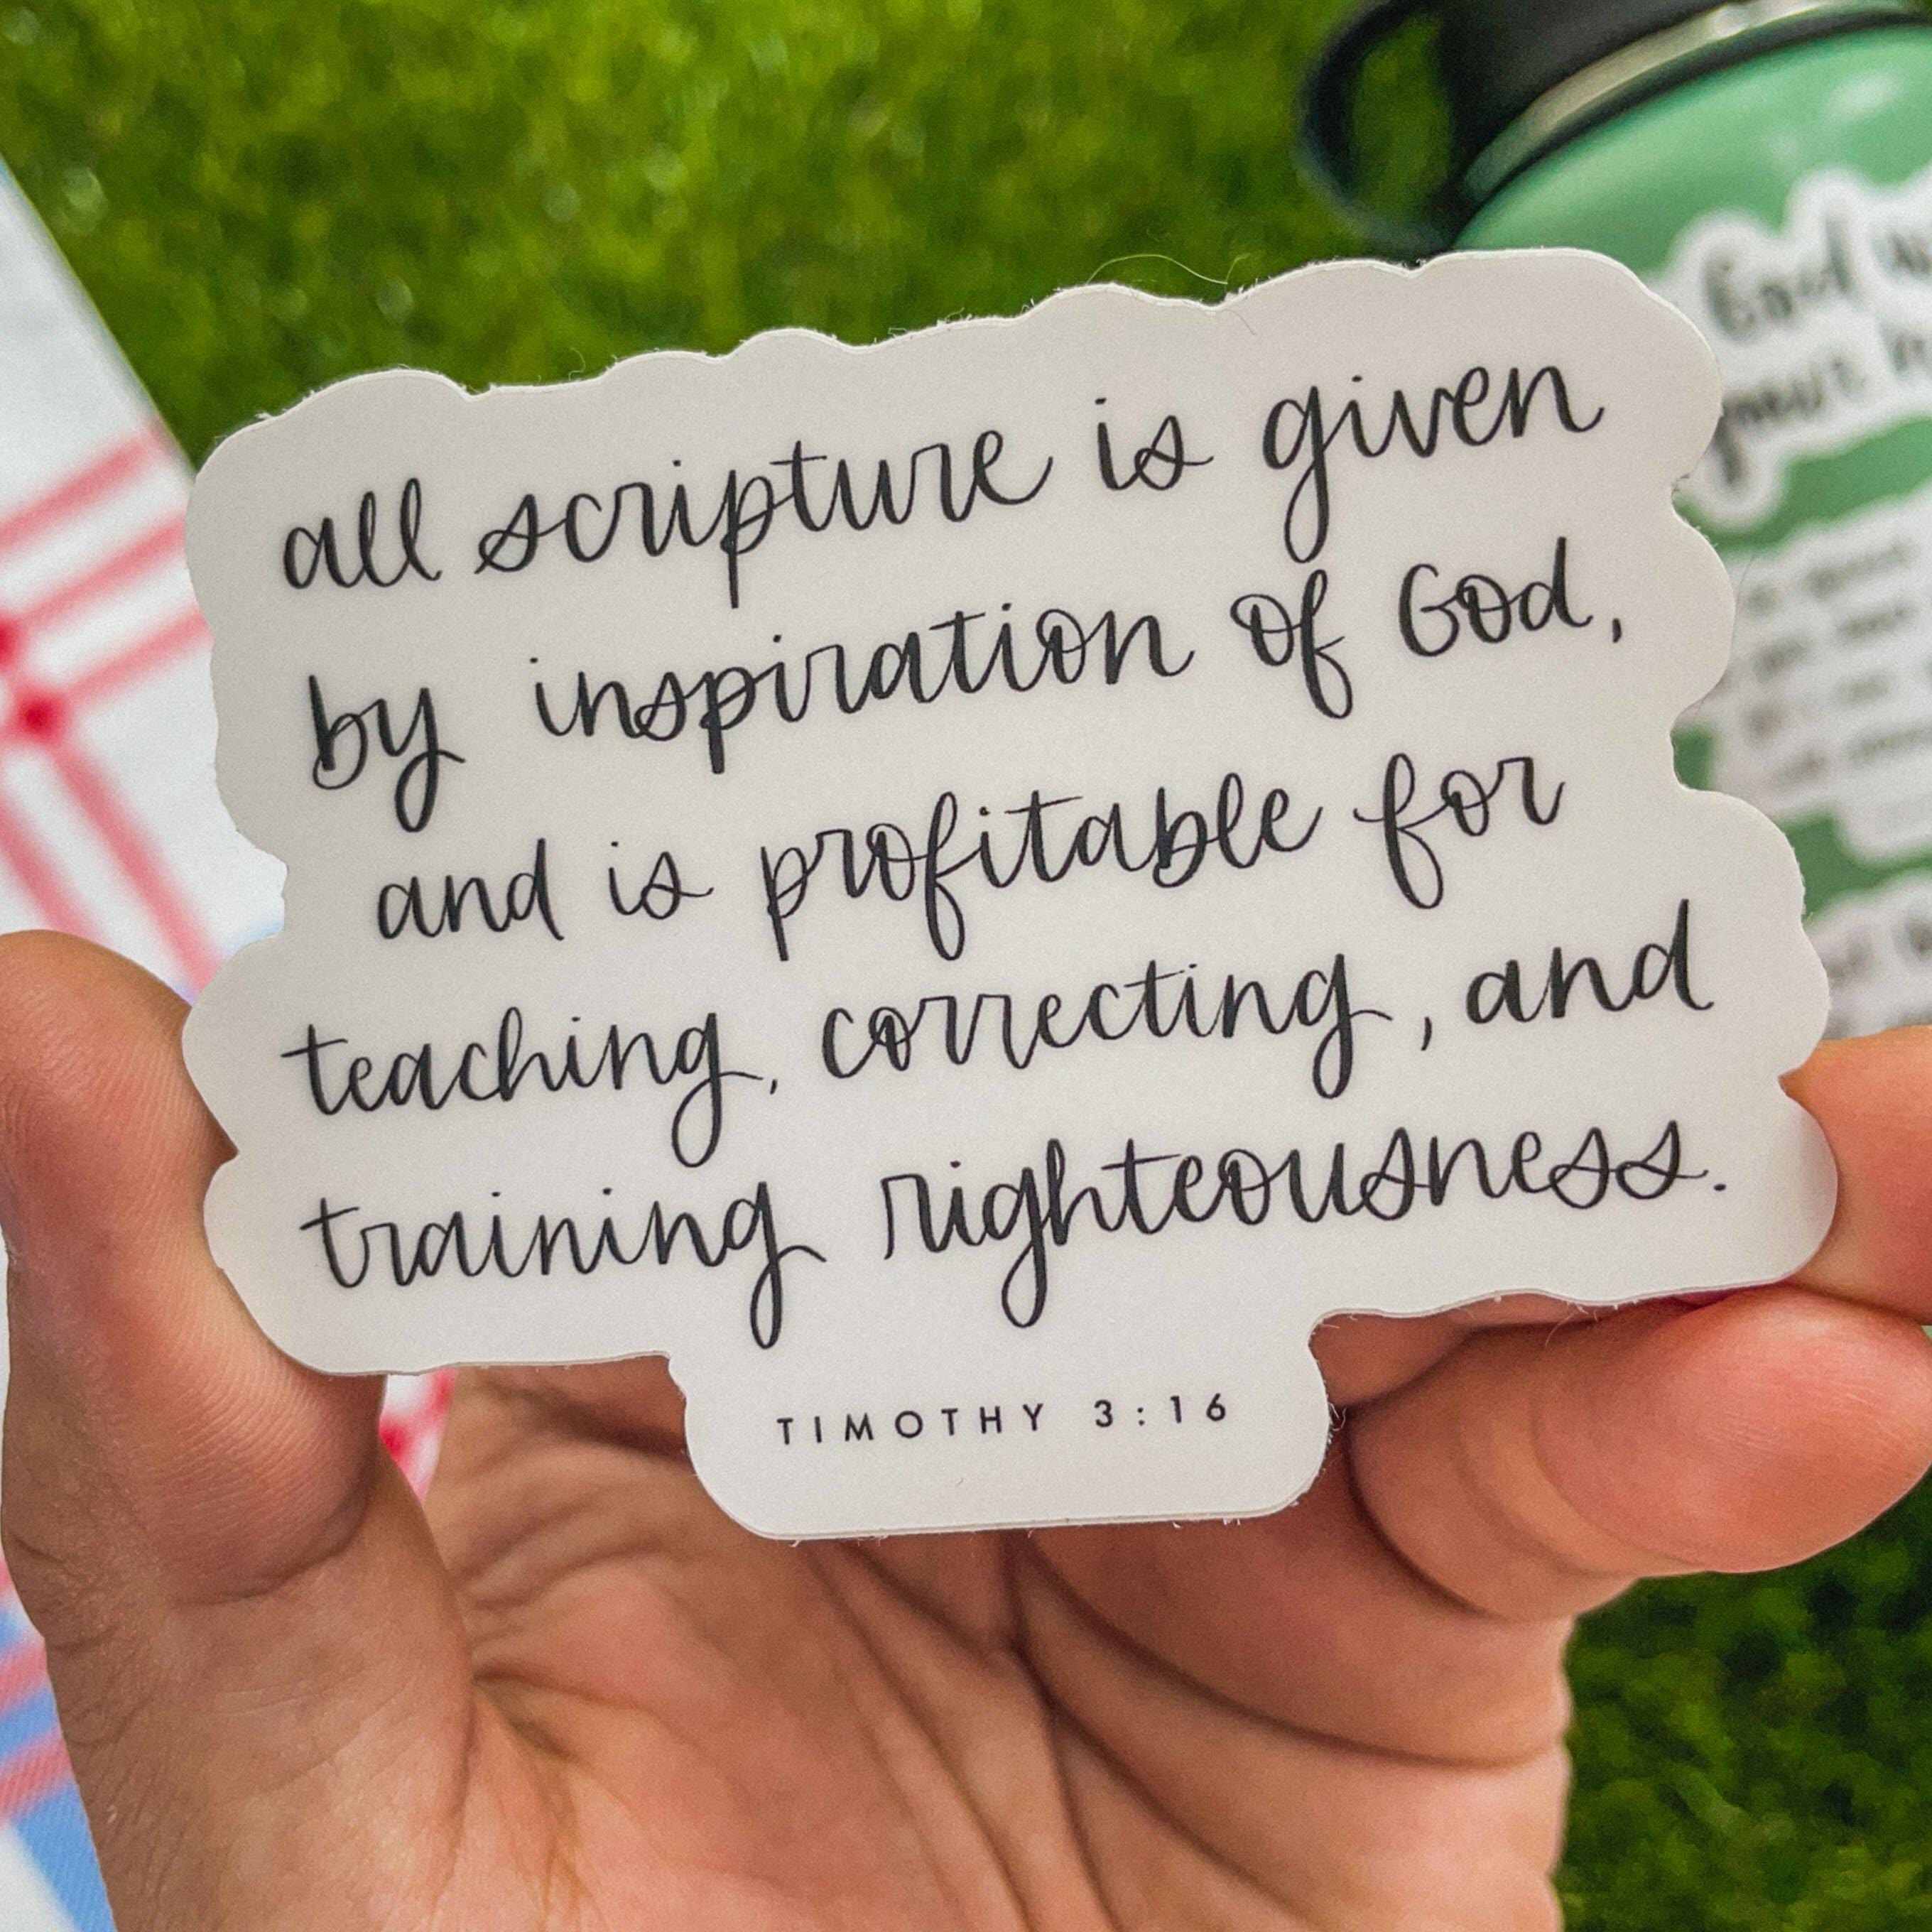 all scripture is given
by inspiration of God,
and is profitable for
teaching, correcting, and
training righteousness.
TIMOTHY 3:16
God
your